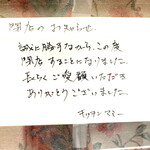 閉店のお知らせ
誠に勝手ながら、この度
閉店することになりました。
長らくご愛顧いただき
ありがとうございました。
キッチンマミー